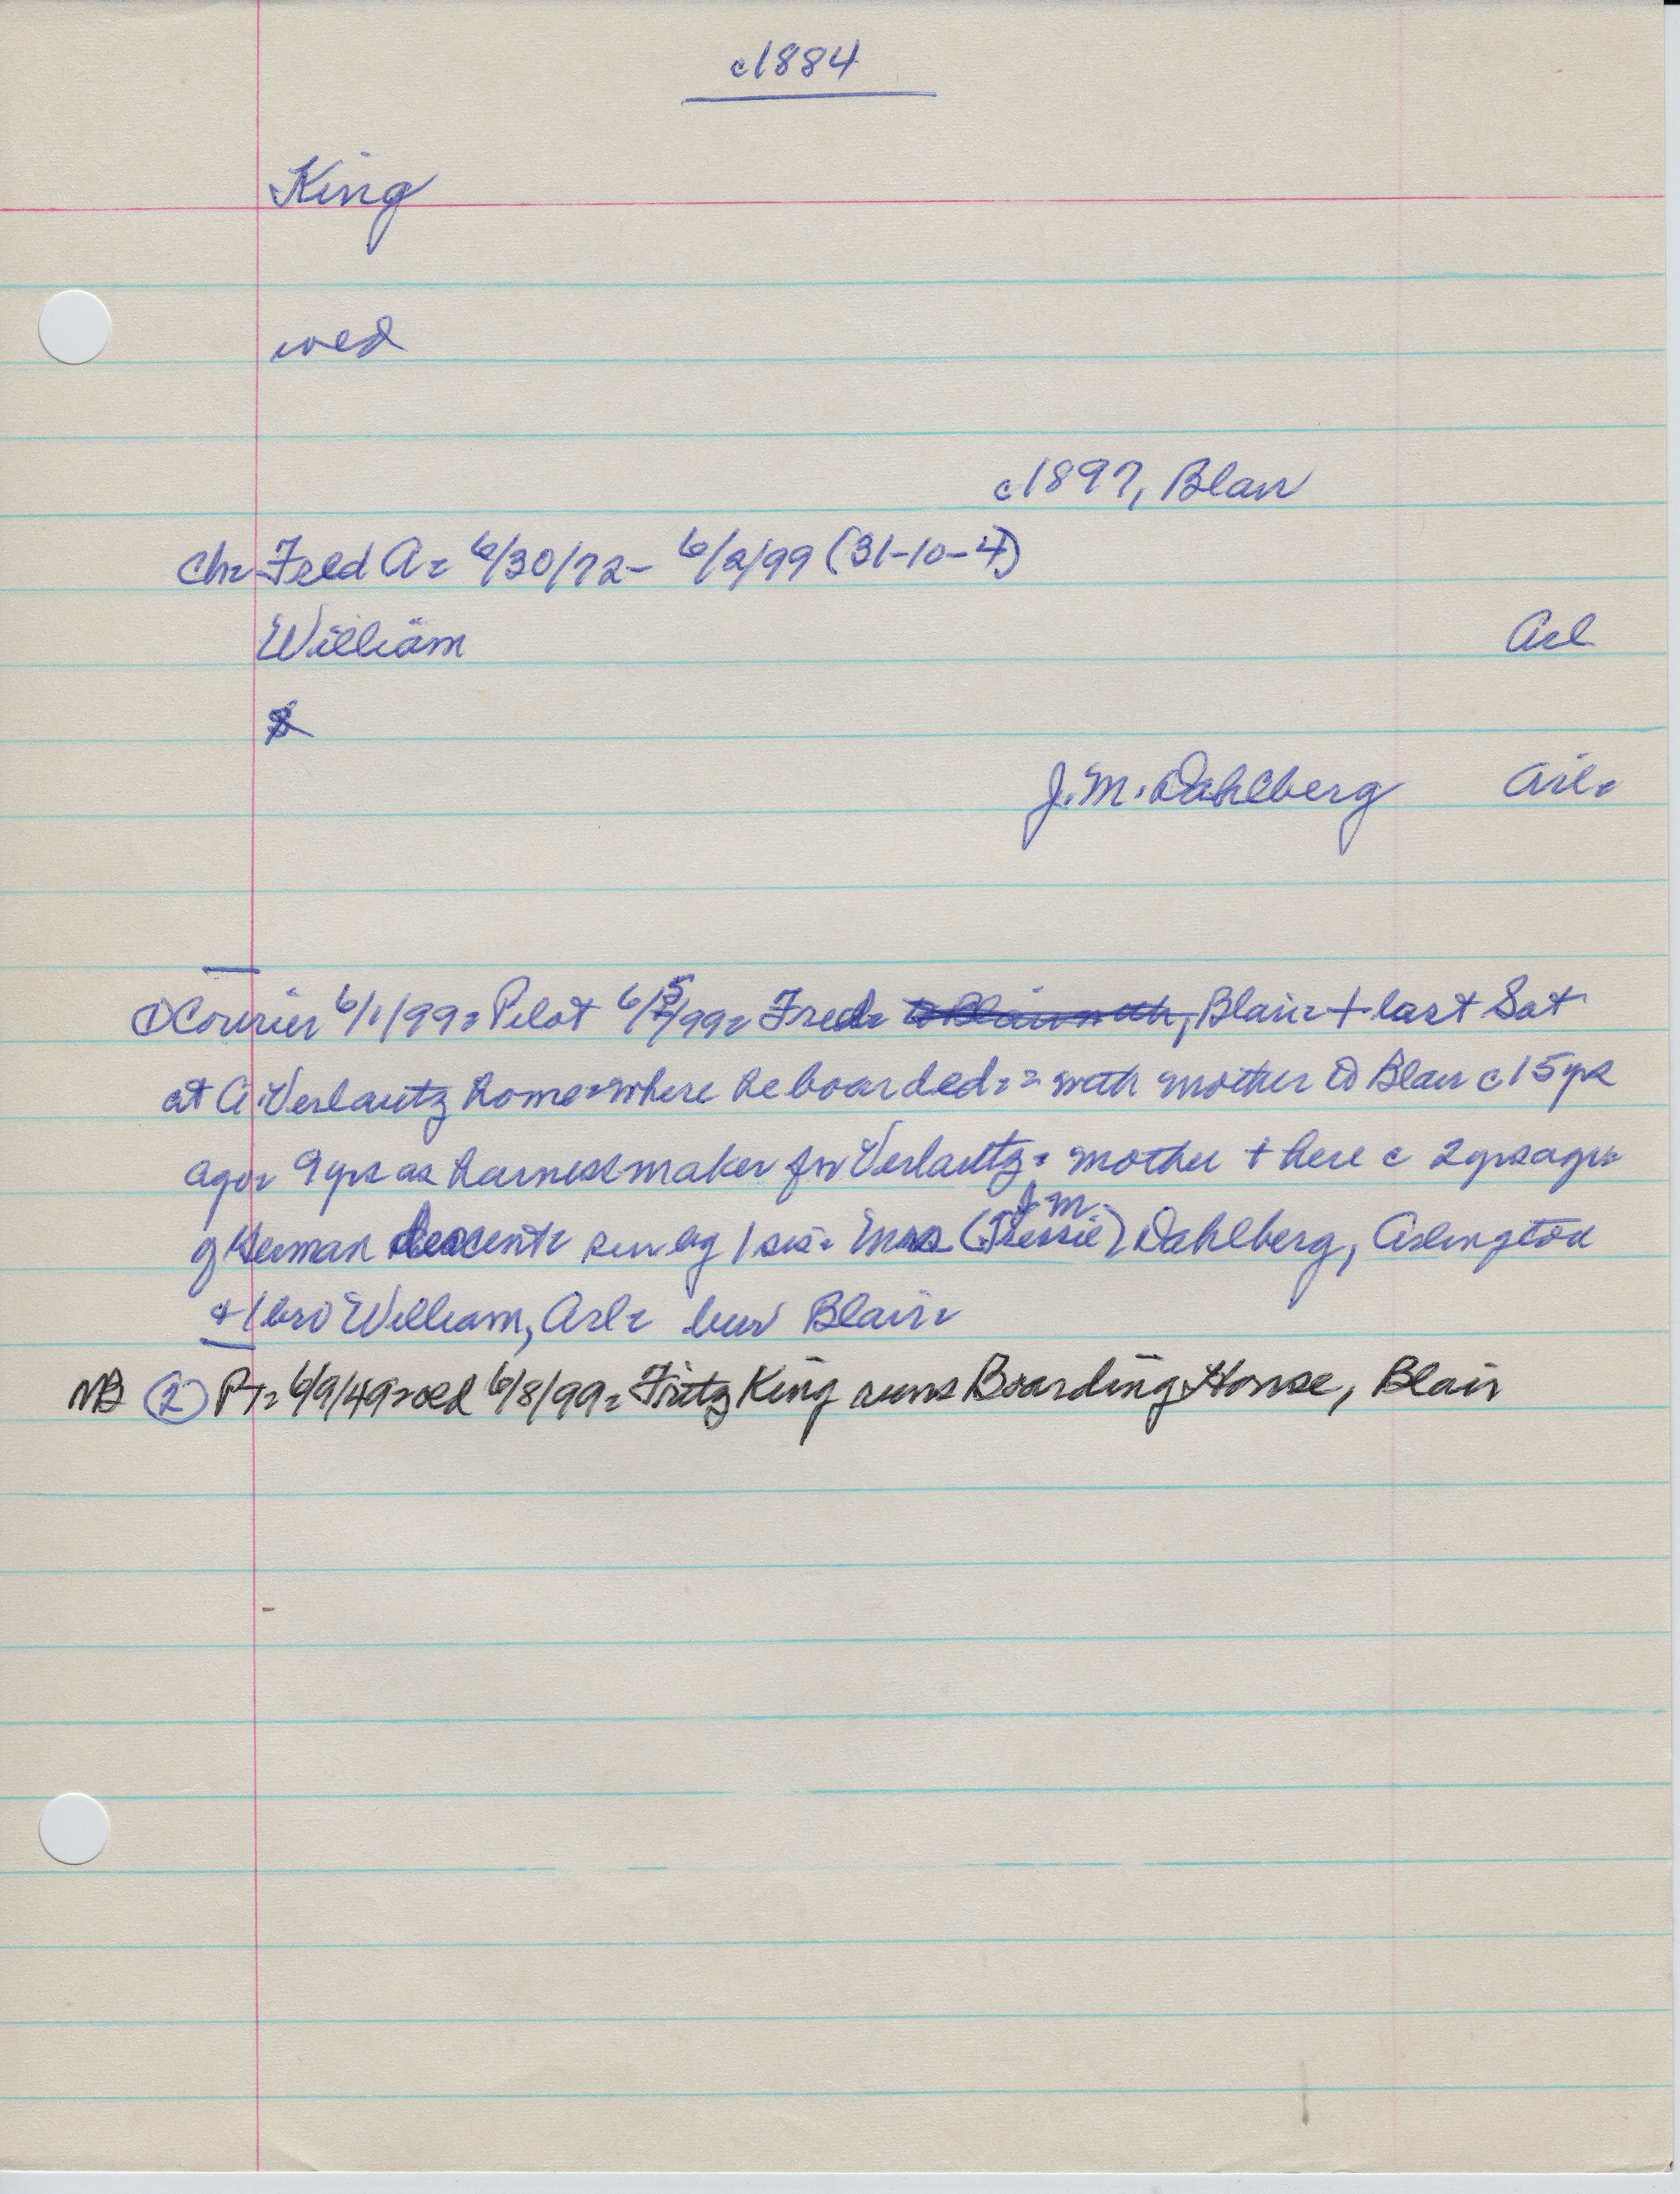 c1884
King
wed
c1897, Blair
Ch= Fred A= 6/30/72- 6/2/99 (31-10-4)
William Arl
J.M. Dahlberg Arl=
Courier 6/1/99= Pilot 6/5/99= Fred= Blair= + last Sat
at A. Verlautz home=where he boarded= = with mother to Blair c15yrs
ago= 9 yrs as harnessmaker for Verlautz= mother + here c 2yrsago=
of German descent= surv by 1 sis= Mrs (Tressie) J.M. Dahlberg, Arlington
+ 1 bro William, Arl= bur Blair=
NB (2) PT= 6/9/49= wed 6/8/99= Fritz King runs Boarding House, Blair